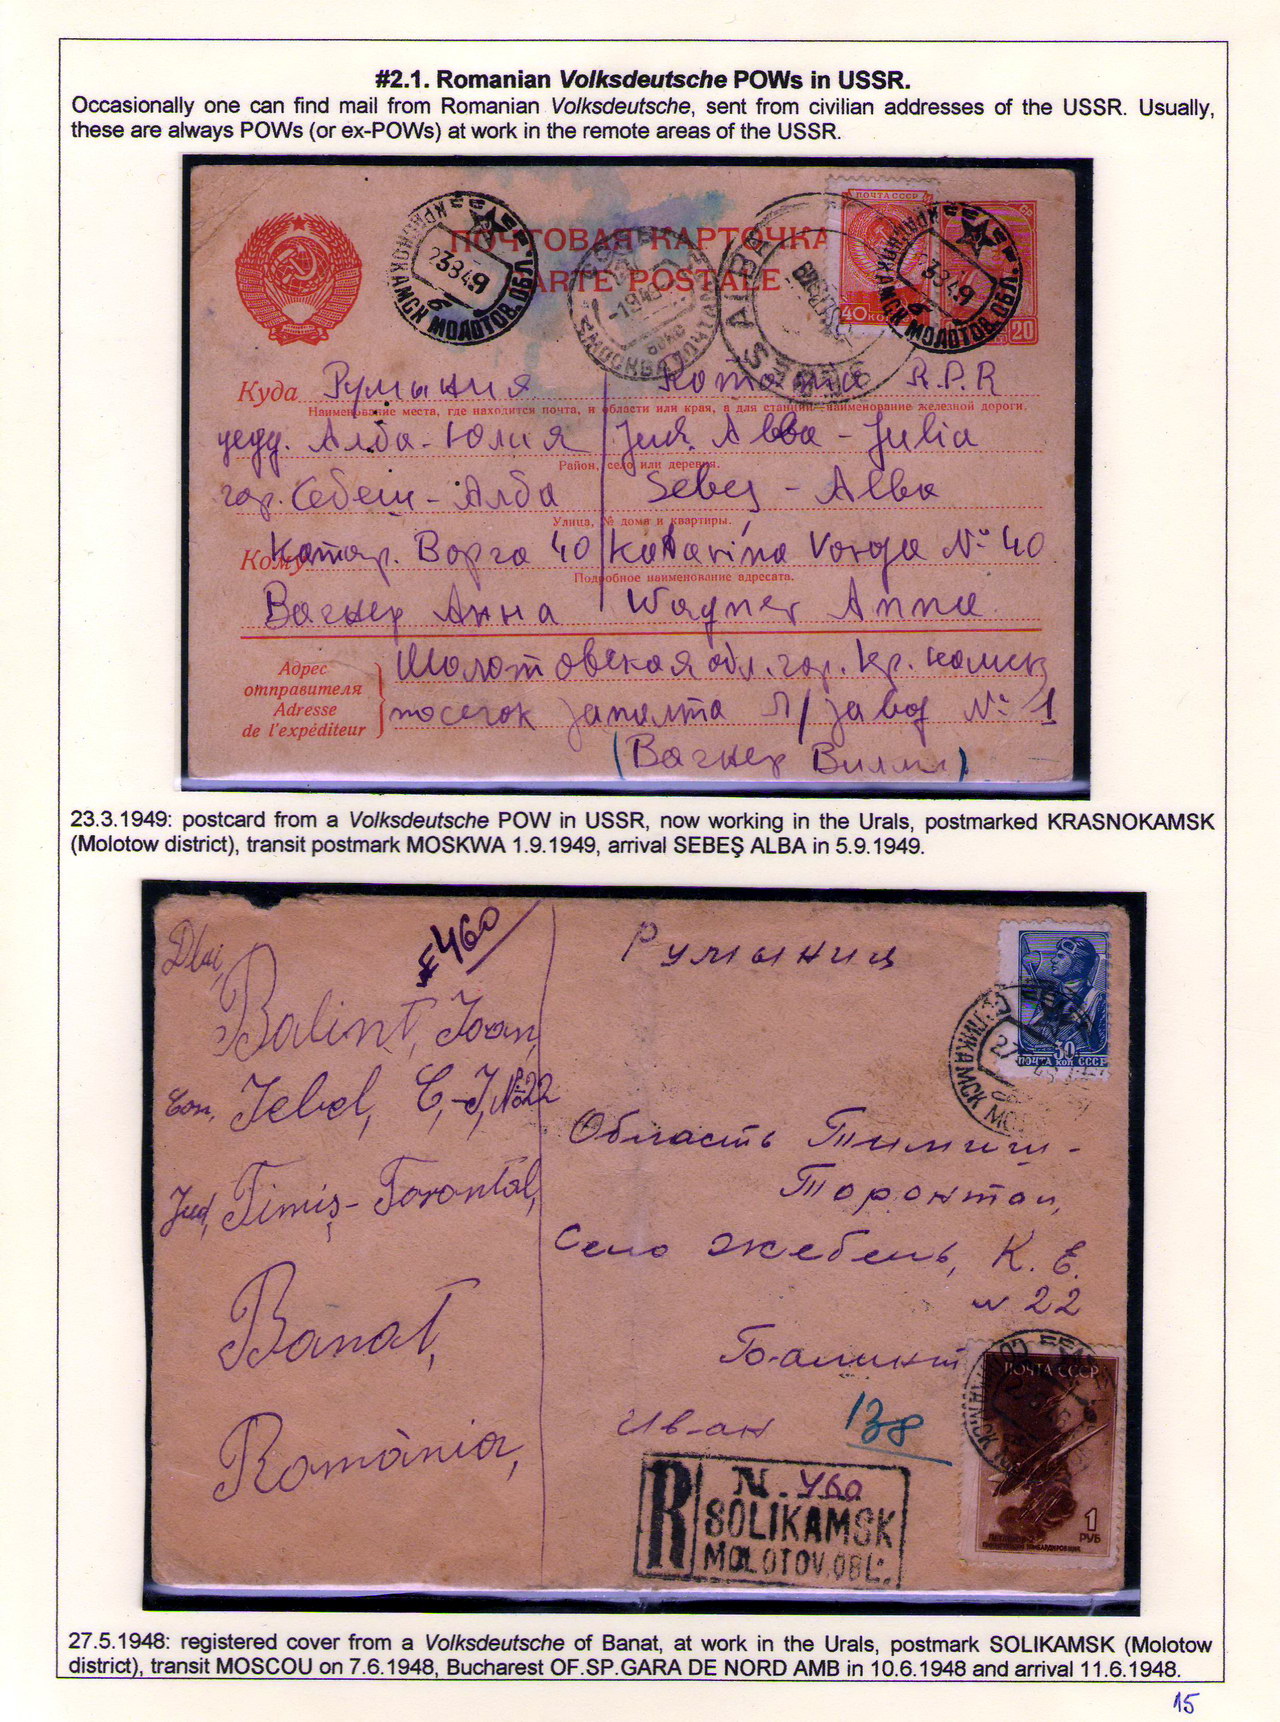 #2.1. Romanian Volksdeutsche POWs in USSR.
Occasionally one can find mail from Romanian Volksdeutsche, sent from civilian addresses of the USSR. Usually,
these are always POWs (or ex-POWs) at work in the remote areas of the USSR.
ПОЧТОВАЯ КАРТОЧКА
CARTE POSTALE
ПОЧТА СССР
40 КОП
20
КРАСНОКАМСК МОЛОТОВ. ОБЛ.
23849
КРАСНОКАМСК МОЛОТОВ. ОБЛ.
23849
МОСКВА ПОЧТАМТ
-1.9.49
SEBES ALBA
Куда Румыния
România R.P.R
Наименование места, где находится почта, и области или края, а для станции—наименование железной дороги.
уезд. Алба-Юлия
Jud. Alba-Julia
Район, село или деревня.
гор. Себеш-Алба
Sebeș-Alba
Улица, № дома и квартиры.
Кому Катар. Ворга 40
Katarina Vorga № 40
Подробное наименование адресата.
Вагнер Анна
Wagner Anna
Адрес отправителя
Adresse de l'expéditeur
Молотовская обл. гор. Кр. камск
поселок запалта П/завод № 1
(Вагнер Вилли)
23.3.1949: postcard from a Volksdeutsche POW in USSR, now working in the Urals, postmarked KRASNOKAMSK
(Molotow district), transit postmark MOSKWA 1.9.1949, arrival SEBEŞ ALBA in 5.9.1949.
№460
Balint, Ioan,
Com, Jebel, C,-J, № 22
Jud, Timiș-Torontal,
Banat,
România,
Румыния
30
ПОЧТА КОП СССР
СОЛИКАМСК МОЛ
Область Тимиш-
Торонтал,
Село Жебель, К. Е.
N 22
Балинт
Иван
138
ПОЧТА СССР
1
РУБ
R
N. 460
SOLIKAMSK
MOLOTOV.OBL.
27.5.1948: registered cover from a Volksdeutsche of Banat, at work in the Urals, postmark SOLIKAMSK (Molotow
district), transit MOSCOU on 7.6.1948, Bucharest OF.SP.GARA DE NORD AMB in 10.6.1948 and arrival 11.6.1948.
15